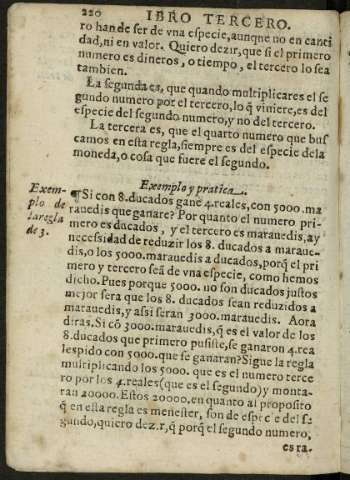 220 IBRO TERCERO.
ro han de ser de vna especie, aunque no en canti
dad, ni en valor. Quiero dezir, que si el primero
numero es dineros, o tiempo, el tercero lo sea
tambien.
La segunda es, que quando multiplicares el se
gundo numero por el tercero, lo q̃ viniere, es del
especie del segundo numero, y no del tercero.
La tercera es, que el quarto numero que bus
camos en esta regla, siempre es del especie dela
moneda, o cosa que fuere el segundo.
Exemplo y pratica.
Exem-
plo de
la regla
de 3.
¶Si con 8. ducados gane 4. reales, con 5000. ma
rauedis que ganare? Por quanto el numero pri-
mero es ducados, y el tercero es marauedis, ay
necessidad de reduzir los 8. ducados a maraue-
dis, o los 5000. marauedis a ducados, porq̃ el pri
mero y tercero seã de vna especie, como hemos
dicho. Pues porque 5000. no son ducados justos
mejor sera que los 8. ducados sean reduzidos a
marauedis, y assi seran 3000. marauedis. Aora
diras. Si cõ 3000. marauedis, q̃ es el valor de los
8. ducados que primero pusiste, se ganaron 4. rea
les pido con 5000. que se ganaran? Sigue la regla
multiplicando los 5000. que es el numero terce
ro por los 4. reales (que es el segundo) y monta-
ran 20000. Estos 20000. en quanto al proposito
q̃ en esta regla es menester, son de especie del se
gundo, quiero dezir, q̃ porq̃ el segundo numero,
es rea-